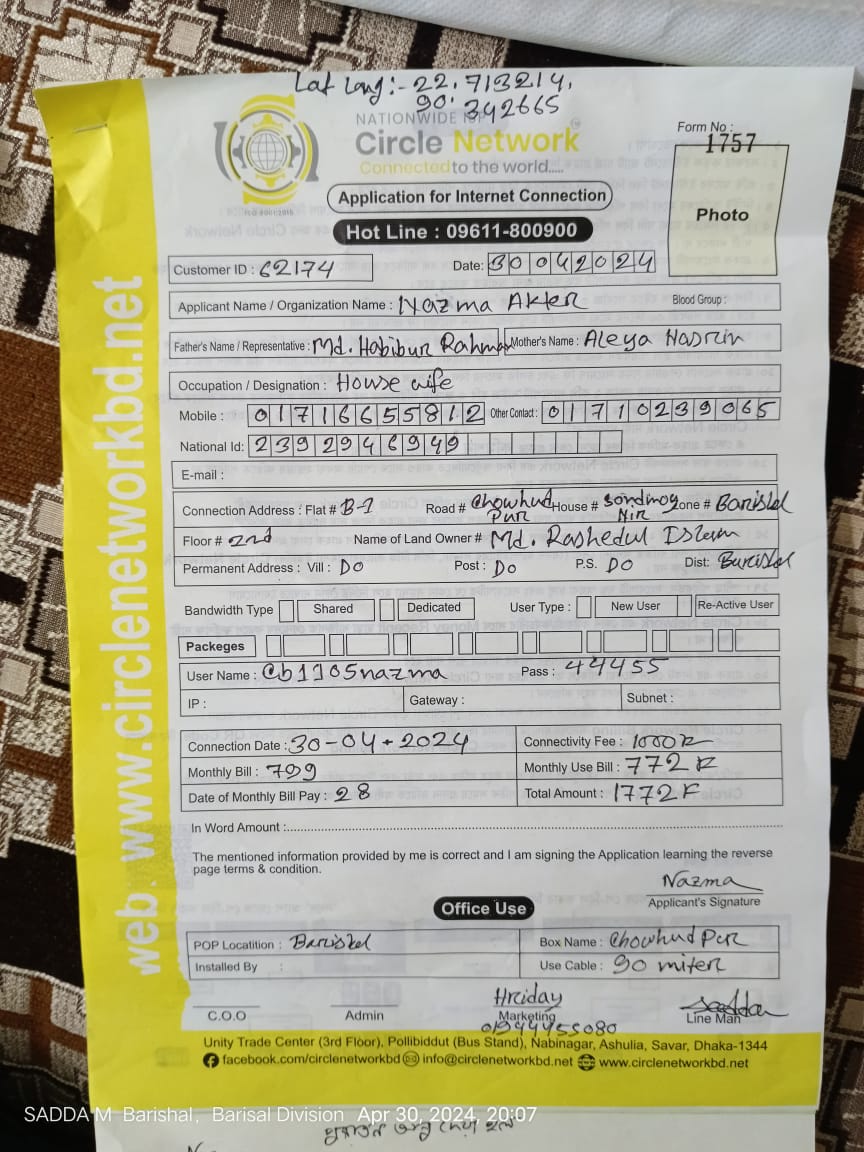 Lat Long:- 22.713214,
90.342665
NATIONWIDE ISP
Circle Network
Connected to the world.....
ISO 9001:2015
Form No :
1757
Photo
Application for Internet Connection
Hot Line : 09611-800900
Customer ID : 62174 Date: 30042024
Applicant Name / Organization Name : Nazma Akter Blood Group :
Father's Name / Representative : Md. Habibur Rahman Mother's Name : Aleya Hasrin
Occupation / Designation : House wife
Mobile : 01716655812 Other Contact : 01710239065
National Id: 2392946949
E-mail :
Connection Address : Flat # B-1 Road # Chowhud Pur House # Sondmoy Nir Zone # Barishal
Floor # 2nd Name of Land Owner # Md. Rashedul Islam
Permanent Address : Vill : DO Post : DO P.S. DO Dist: Barishal
Bandwidth Type Shared Dedicated User Type : New User Re-Active User
Packeges
User Name : @b1105nazma Pass : 44455
IP : Gateway : Subnet :
Connection Date : 30-04-2024 Connectivity Fee : 1000
Monthly Bill : 799 Monthly Use Bill : 772
Date of Monthly Bill Pay : 28 Total Amount : 1772
In Word Amount :
The mentioned information provided by me is correct and I am signing the Application learning the reverse
page terms & condition.
Nazma
Applicant's Signature
Office Use
POP Locatition : Barishal Box Name : Chowhud Pur
Installed By : Use Cable : 90 miter
Hriday
C.O.O Admin Marketing Line Man
01944455080
Unity Trade Center (3rd Floor), Pollibiddut (Bus Stand), Nabinagar, Ashulia, Savar, Dhaka-1344
facebook.com/circlenetworkbd info@circlenetworkbd.net www.circlenetworkbd.net
web : www.circlenetworkbd.net
SADDA M Barishal, Barisal Division Apr 30, 2024, 20:07